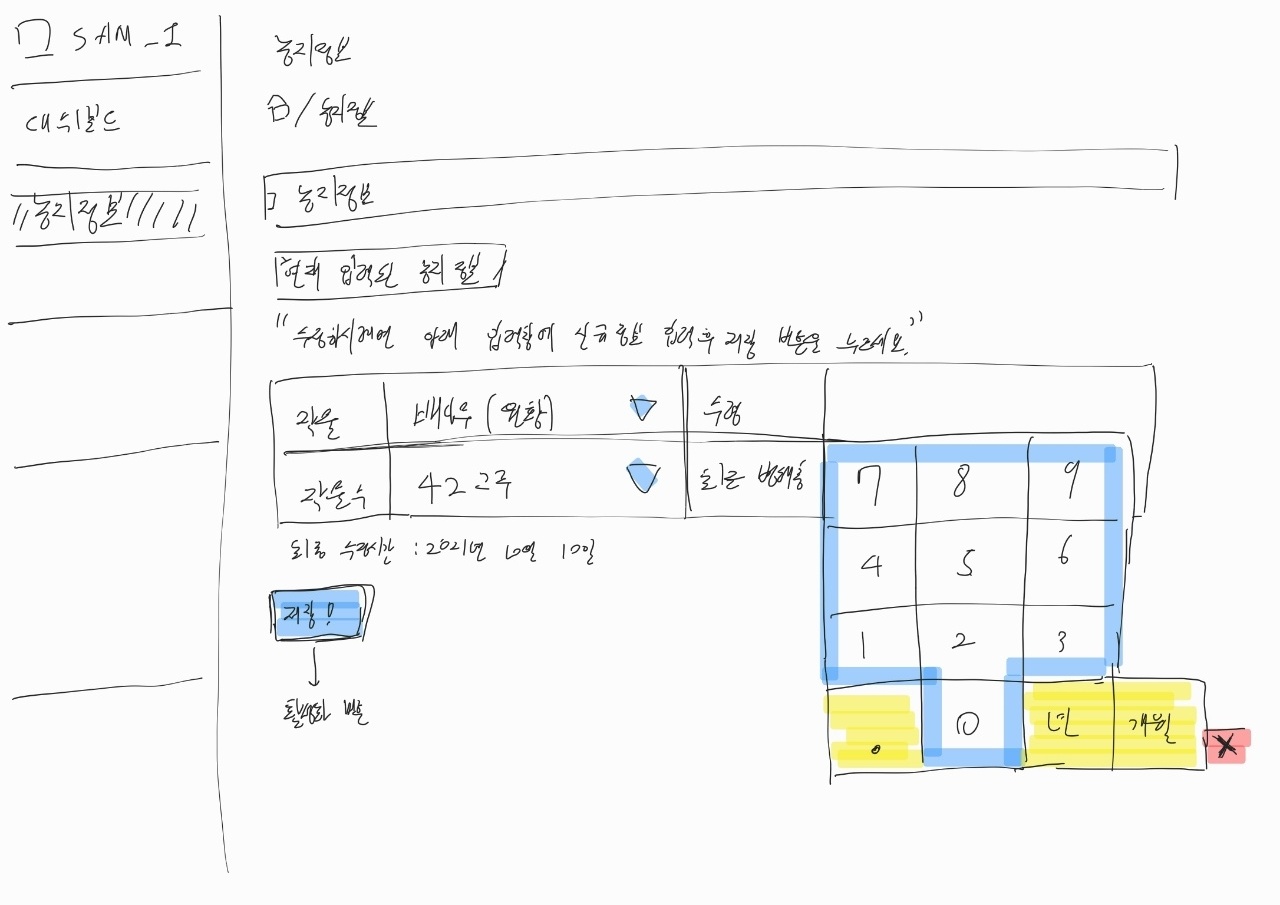 SAM_I
대쉬보드
농지정보
농지정보
/ 농지정보
농지정보
현재 입력된 농지 정보
"수정하시려면 아래 입력창에 신규정보 입력 후 저장 버튼을 누르세요."
작물 배나무 (원황) 수령
작물수 42 그루 최근 병해충
최종 수정시간 : 2021년 10월 10일
저장!
활성화 버튼
7 8 9
4 5 6
1 2 3
. 0 년 개월 X